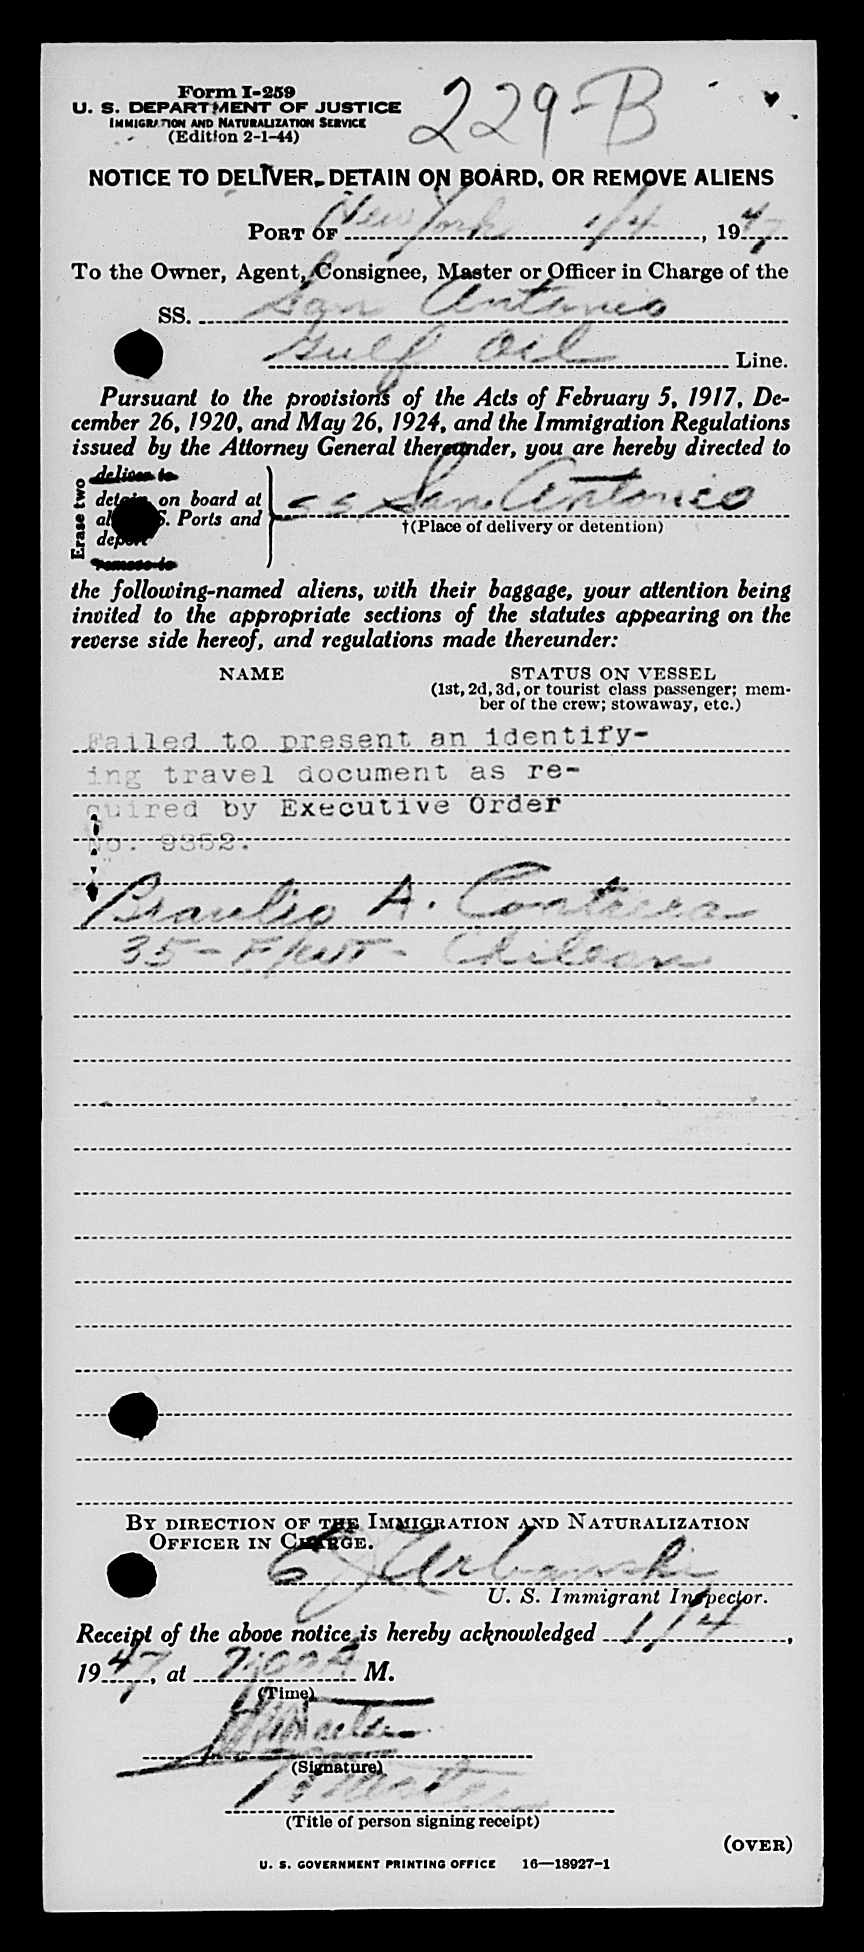 Form I-259
U. S. DEPARTMENT OF JUSTICE
IMMIGRATION AND NATURALIZATION SERVICE
(Edition 2-1-44)
229-B
NOTICE TO DELIVER, DETAIN ON BOARD, OR REMOVE ALIENS
PORT OF New York 1/4, 1947
To the Owner, Agent, Consignee, Master or Officer in Charge of the
SS. San Antonio
Gulf Oil Line.
Pursuant to the provisions of the Acts of February 5, 1917, De-
cember 26, 1920, and May 26, 1924, and the Immigration Regulations
issued by the Attorney General thereunder, you are hereby directed to
Erase two
deliver to
detain on board at
all U. S. Ports and
deport
remove to
SS San Antonio
†(Place of delivery or detention)
the following-named aliens, with their baggage, your attention being
invited to the appropriate sections of the statutes appearing on the
reverse side hereof, and regulations made thereunder:
NAME STATUS ON VESSEL
(1st, 2d, 3d, or tourist class passenger; mem-
ber of the crew; stowaway, etc.)
Failed to present an identify-
ing travel document as re-
quired by Executive Order
No. 9352.
Braulio A. Contrera
35 - F/WT - Chilean
BY DIRECTION OF THE IMMIGRATION AND NATURALIZATION
OFFICER IN CHARGE.
E J Urbanski
U. S. Immigrant Inspector.
Receipt of the above notice is hereby acknowledged 1/4,
1947, at M.
(Time)
(Signature)
Master
(Title of person signing receipt)
(OVER)
U. S. GOVERNMENT PRINTING OFFICE 16—18927-1